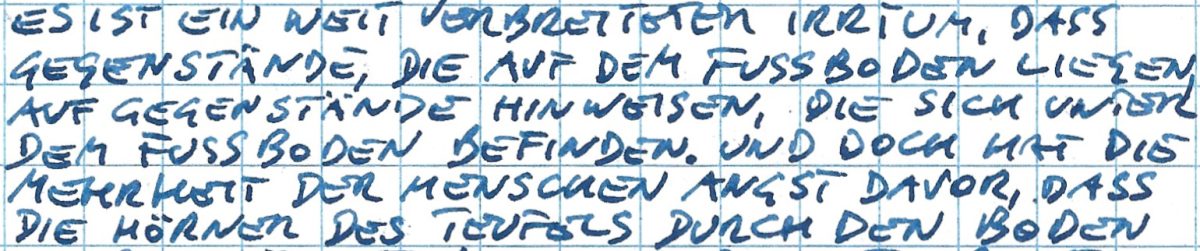 ES IST EIN WEIT VERBREITETER IRRTUM, DASS
GEGENSTÄNDE, DIE AUF DEM FUSSBODEN LIEGEN,
AUF GEGENSTÄNDE HINWEISEN, DIE SICH UNTER
DEM FUSSBODEN BEFINDEN. UND DOCH HAT DIE
MEHRHEIT DER MENSCHEN ANGST DAVOR, DASS
DIE HÖRNER DES TEUFELS DURCH DEN BODEN